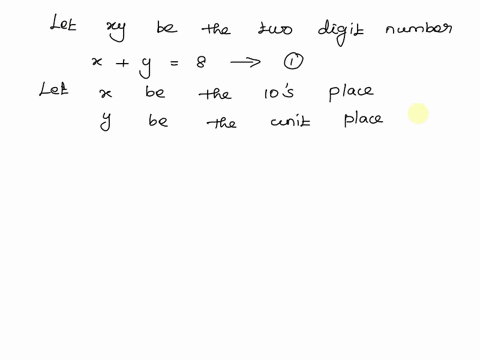 Let xy be the two digit number
x + y = 8 → ①
Let x be the 10's place
y be the unit place